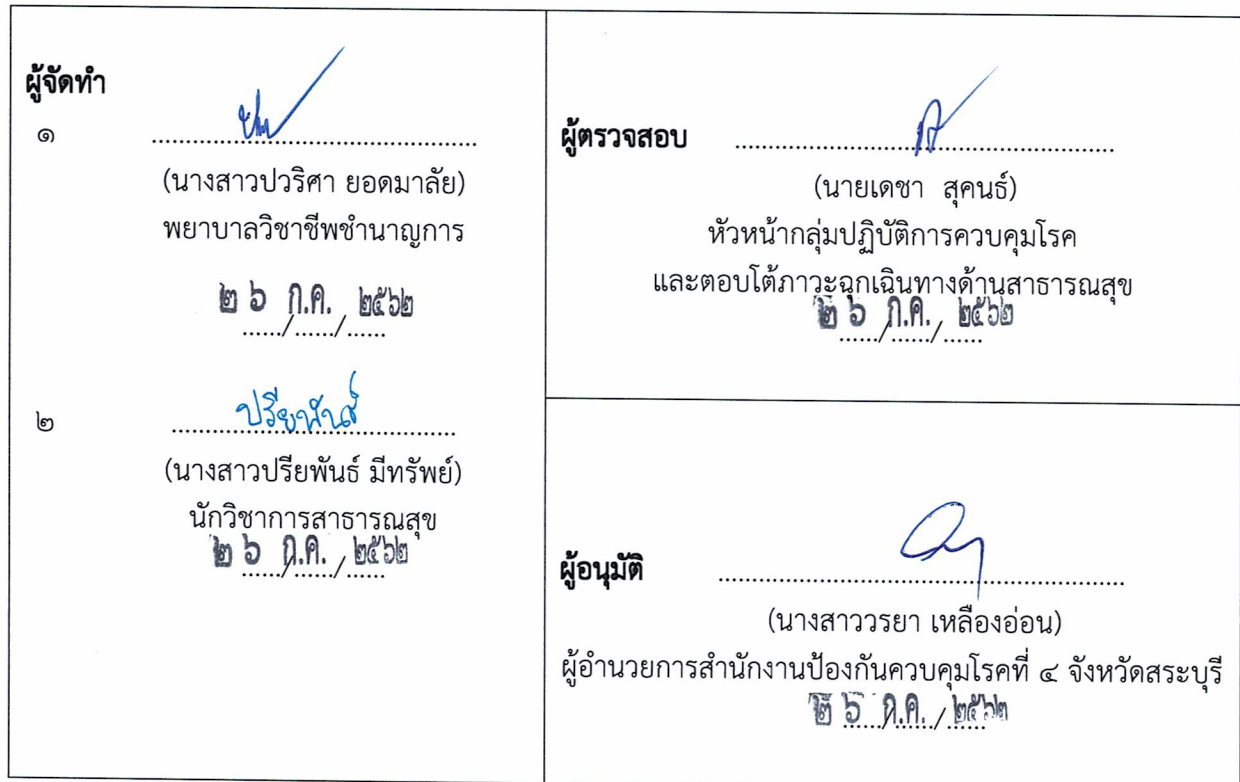 ผู้จัดทำ
๑ ................................................
(นางสาวปวริศา ยอดมาลัย)
พยาบาลวิชาชีพชำนาญการ
๒ ๖ ก.ค. ๒๕๖๒
....../....../......
๒ ปรียพันธ์
(นางสาวปรียพันธ์ มีทรัพย์)
นักวิชาการสาธารณสุข
๒ ๖ ก.ค. ๒๕๖๒
....../....../......
ผู้ตรวจสอบ ................................................
(นายเดชา สุคนธ์)
หัวหน้ากลุ่มปฏิบัติการควบคุมโรค
และตอบโต้ภาวะฉุกเฉินทางด้านสาธารณสุข
๒ ๖ ก.ค. ๒๕๖๒
....../....../......
ผู้อนุมัติ ................................................
(นางสาววรยา เหลืองอ่อน)
ผู้อำนวยการสำนักงานป้องกันควบคุมโรคที่ ๔ จังหวัดสระบุรี
๒ ๖ ก.ค. ๒๕๖๒
....../....../......